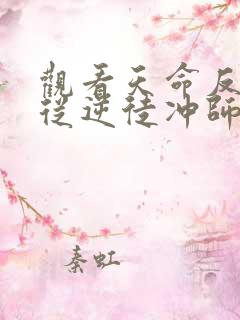 觀看天命反
從逆徒冲師
秦虹